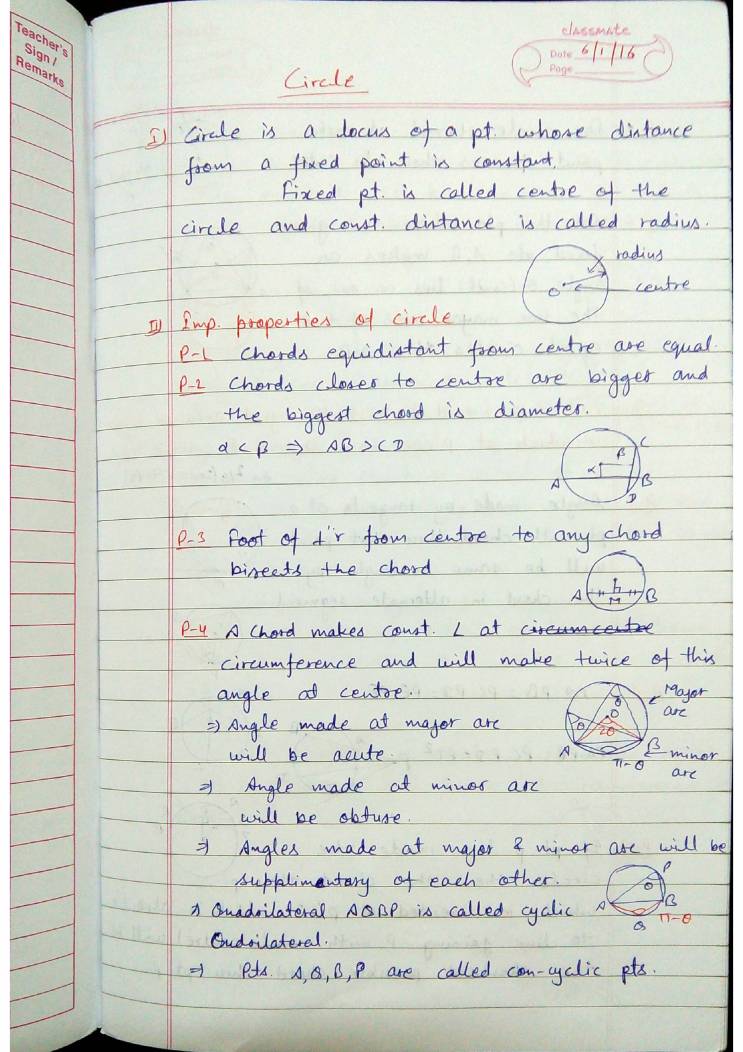 Teacher's
Sign /
Remarks
classmate
Date 6/1/16
Page
Circle
I) Circle is a locus of a pt. whose distance
from a fixed point is constant.
Fixed pt. is called centre of the
circle and const. distance is called radius.
radius
O centre
II) Imp. properties of circle
P-1 Chords equidistant from centre are equal.
P-2 Chords closer to centre are bigger and
the biggest chord is diameter.
α < β ⇒ AB > CD
C
β
α
A B
D
P-3 Foot of ⊥'r from centre to any chord
bisects the chord
A M B
P-4 A Chord makes const. ∠ at circumcentre
circumference and will make twice of this
angle at centre.
⇒ Angle made at major arc
will be acute.
θ Major
arc
θ O
2θ
A B minor
π-θ arc
⇒ Angle made at minor arc
will be obtuse.
⇒ Angles made at major & minor arc will be
supplimentary of each other.
P
θ
A B
Q π-θ
⇒ Quadrilateral AQBP is called cyclic
Qudrilateral.
⇒ Pts. A,Q,B,P are called con-cyclic pts.